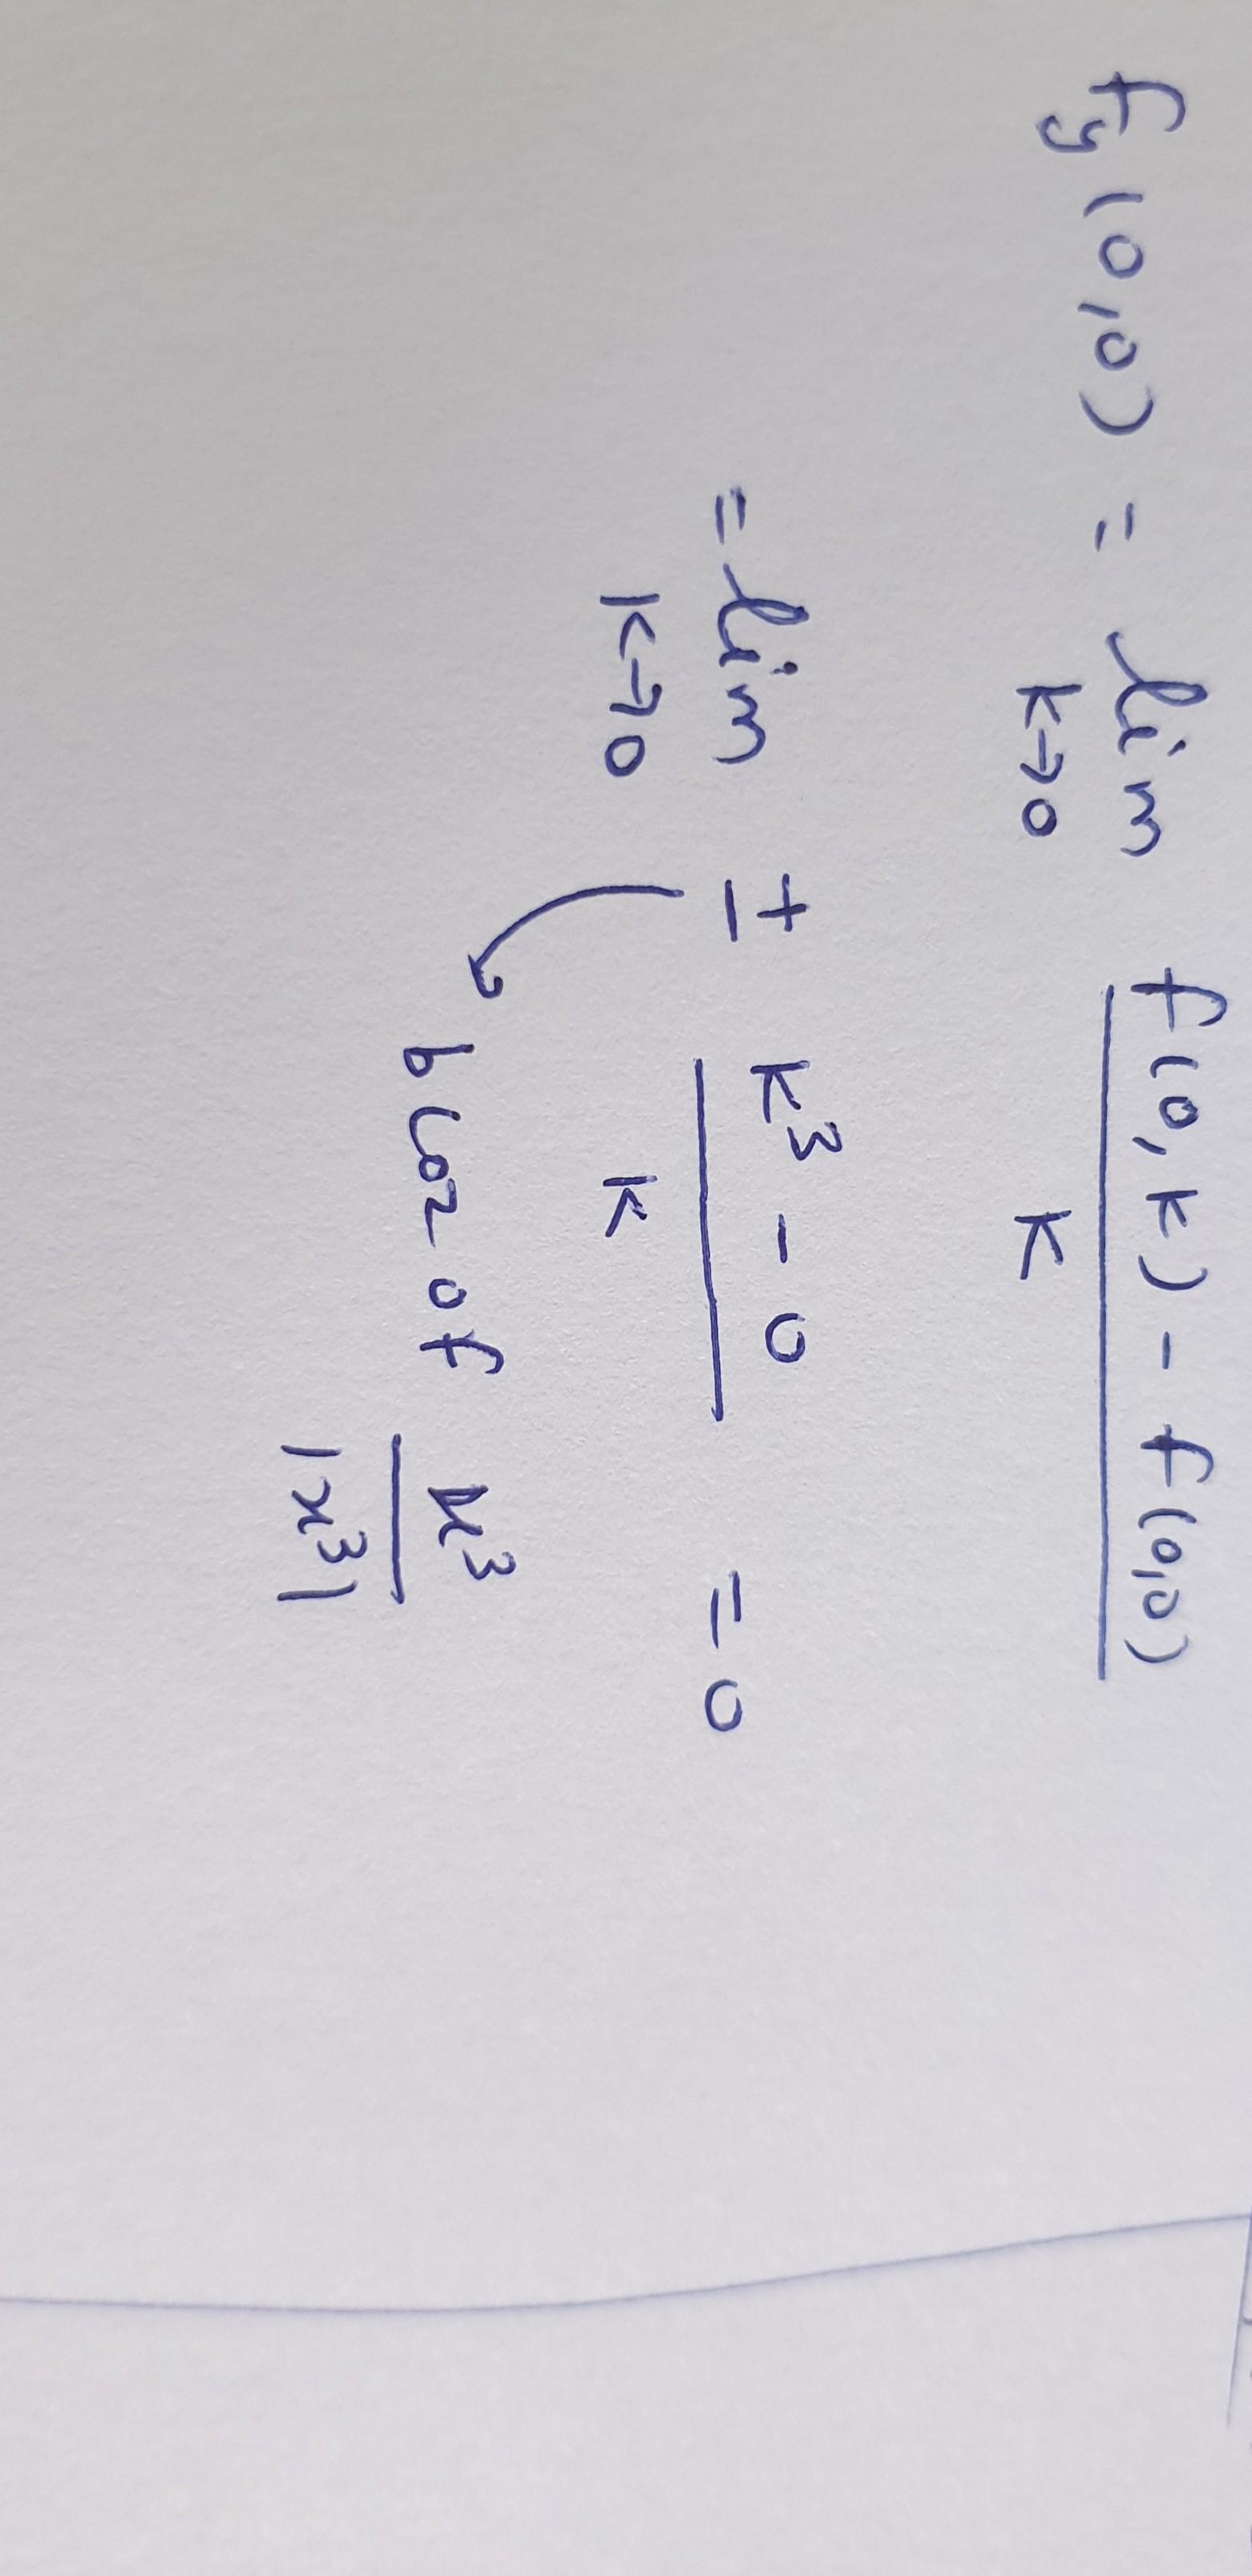 fy(0,0) = lim k→0 (f(0,k) - f(0,0))/k
= lim k→0 ± (k³ - 0)/k = 0
bcoz of x³/|x³|